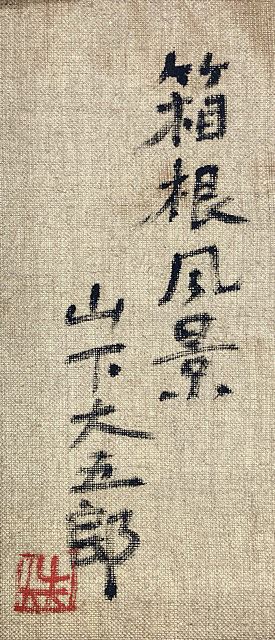 箱根風景
山下大五郎